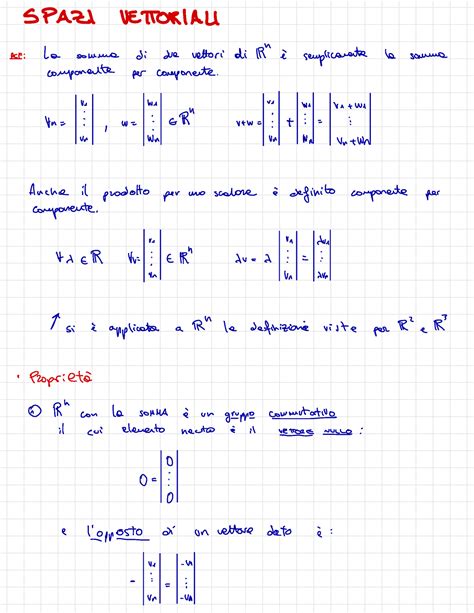 SPAZI VETTORIALI
DEF: La somma di due vettori di ℝⁿ è semplicemente la somma
componente per componente.
Vn = |v1 ⋮ vn| , w = |w1 ⋮ wn| ∈ ℝⁿ   v+w = |v1 ⋮ vn| + |w1 ⋮ wn| = |v1+w1 ⋮ vn+wn|
Anche il prodotto per uno scalare è definito componente per
componente.
∀ λ ∈ ℝ   V= |v1 ⋮ vn| ∈ ℝⁿ   λv = λ |v1 ⋮ vn| = |λv1 ⋮ λvn|
↑ si è applicata a ℝⁿ la definizione viste per ℝ² e ℝ³
• Proprietà
① ℝⁿ con la SOMMA è un gruppo commutativo
il cui elemento neutro è il VETTORE NULLO :
0 = |0 ⋮ 0|
e l'opposto di un vettore dato è :
- |v1 ⋮ vn| = |-v1 ⋮ -vn|